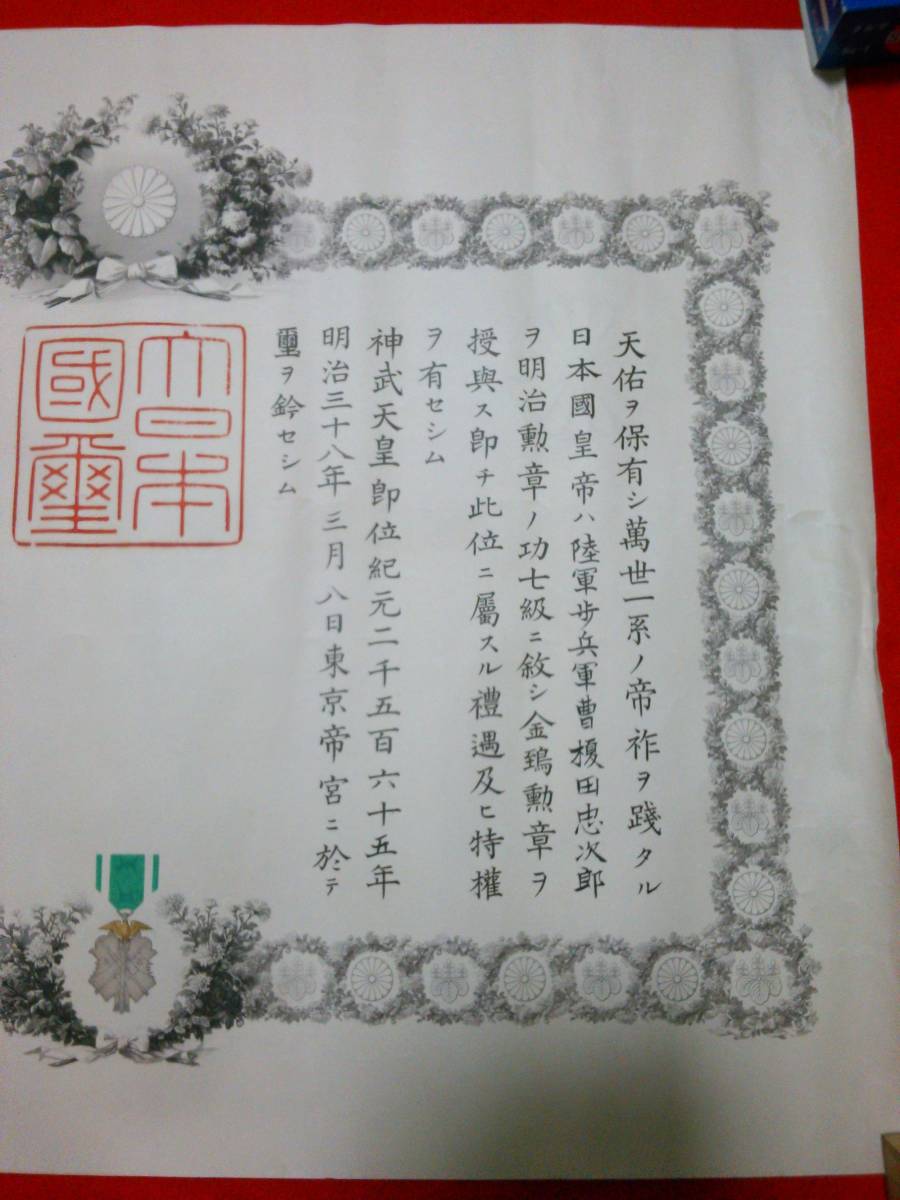 天佑ヲ保有シ萬世一系ノ帝祚ヲ踐タル
日本國皇帝ハ陸軍步兵軍曹榎田忠次郎
ヲ明治勲章ノ功七級ニ敘シ金鵄勲章ヲ
授與ス卽チ此位ニ屬スル禮遇及ヒ特權
ヲ有セシム
神武天皇卽位紀元二千五百六十五年
明治三十八年三月八日東京帝宮ニ於テ
璽ヲ鈐セシム
大日本
國璽